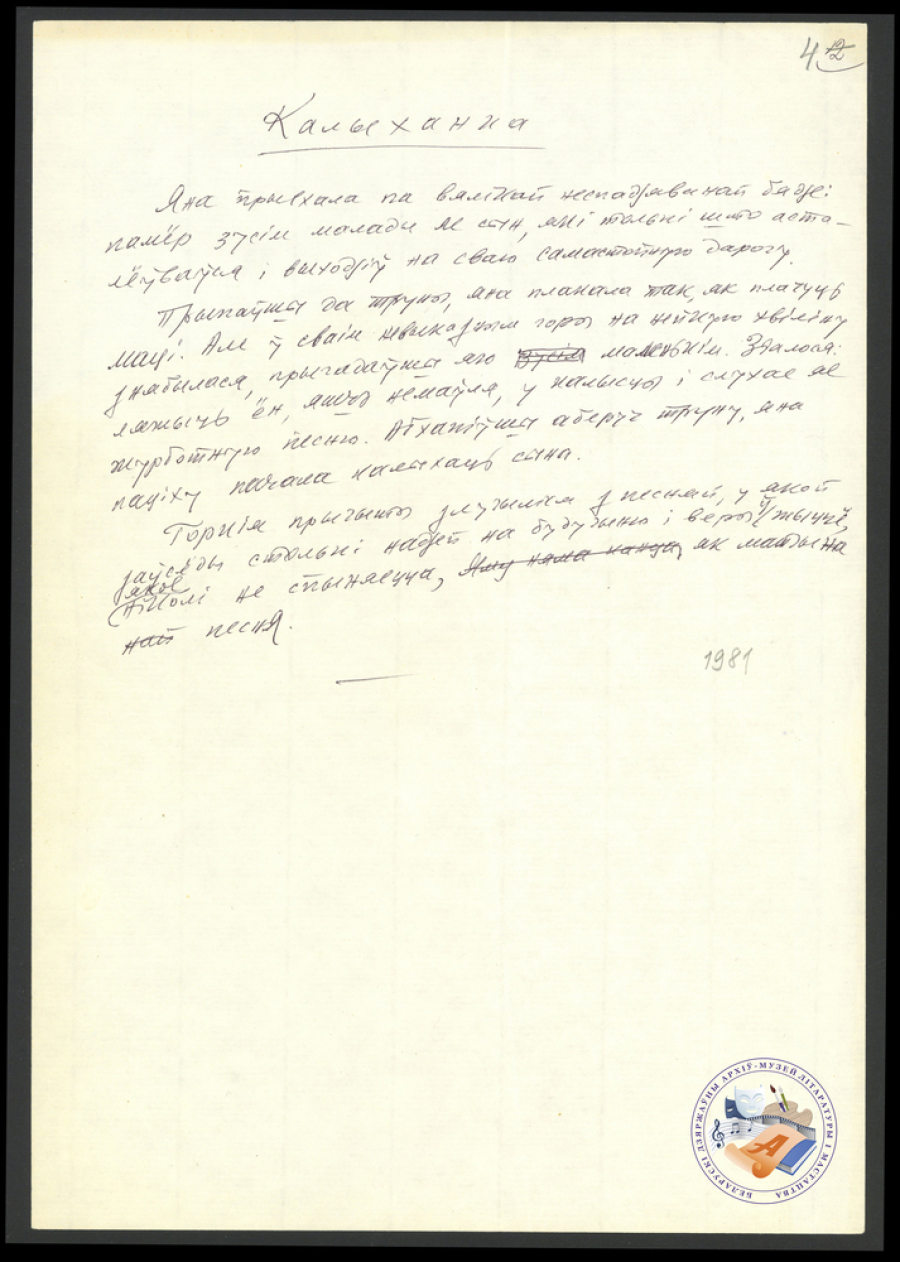 42
Калыханка
Яна прыехала па вялікай неспадзяванай бядзе:
памёр зусім малады яе сын, які толькі што аста-
лёўваўся і выходзіў на сваю самастойную дарогу.
Прыпаўшы да труны, яна плакала так, як плачуць
маці. Але ў сваім невыказным горы на нейкую хвіліну
знябылася, прыгадаўшы яго зусім маленькім. Здалося:
ляжыць ён, яшчэ немаўля, у калысцы і слухае яе
журботную песню. Абхапіўшы аберуч труну, яна
паціху пачала калыхаць сына.
Горкія прычыты злучыліся з песняй, у якой
заўсёды столькі надзей на будучыню і веры ў жыццё,
якое
ніколі не спыняецца, Яму няма канца, як матчына
най песня.
1981
БЕЛАРУСКІ ДЗЯРЖАЎНЫ АРХІЎ-МУЗЕЙ ЛІТАРАТУРЫ І МАСТАЦТВА
А